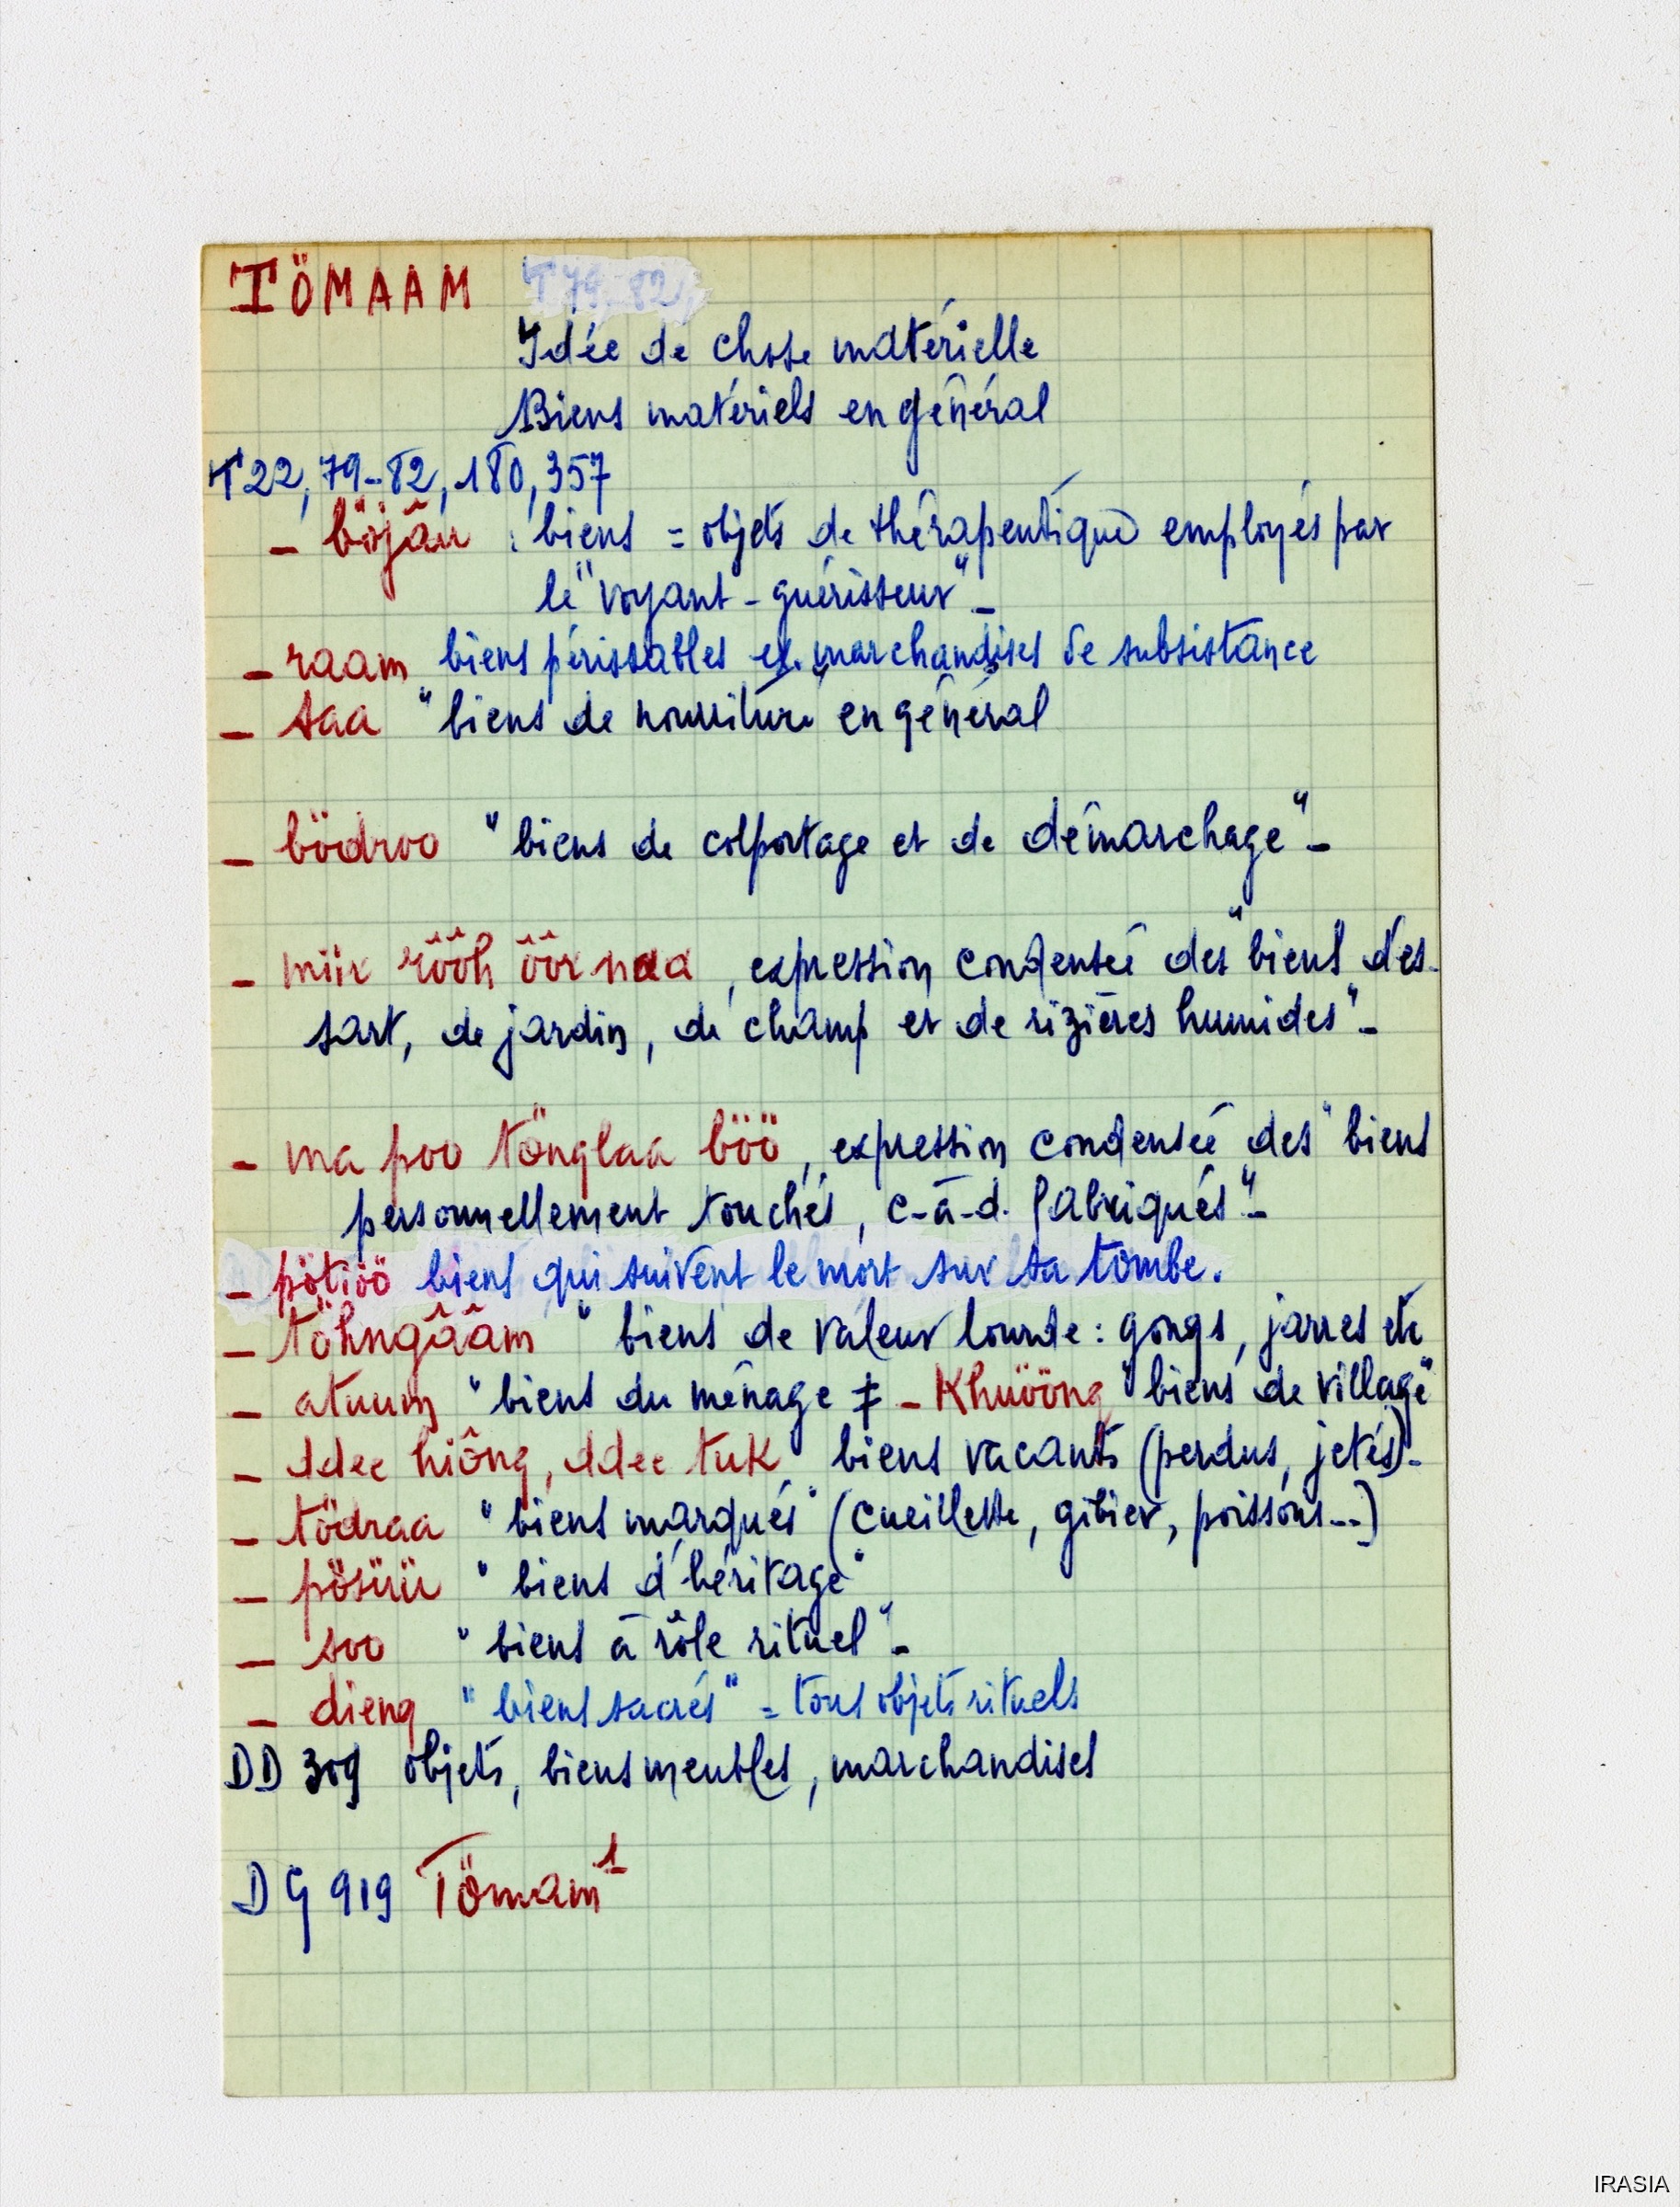 TÖMAAM T79-82,
Idée de chose matérielle
Biens matériels en général
T22, 79-82, 180, 357
- böjâu : biens = objets de thérapeutique employés par
le "voyant-guérisseur" -
- raam biens périssables ex. marchandises de subsistance
- saa "biens de nourriture en général
- bödroo "biens de colportage et de démarchage" -
- miir rôôh ôôr naa, expression condensée des "biens d'es-
sart, de jardin, de champ et de rizières humides" -
- ma poo tönglaa böö, expression condensée des "biens
personnellement touchés, c-à-d. fabriqués" -
- pötiöö biens qui suivent le mort sur sa tombe.
- töhngâââm " biens de valeur lourde : gongs, jarres etc
- atuum "biens du ménage ≠ - Khuööng "biens de village"
- ddee hiông, ddee tuk biens vacants (perdus, jetés) -
- tödraa "biens marqués" (cueillette, gibier, poissons...)
- pösüü "biens d'héritage"
- soo "biens à rôle rituel" -
- dieng "biens sacrés" = tous objets rituels
DD 309 objets, biens meubles, marchandises
DG 919 Tömam¹
IRASIA